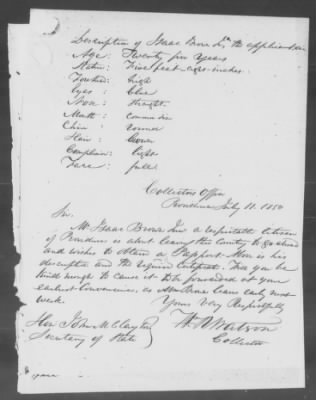 Description of Isaac Brown Jr. the applicant
Age : Twenty five Years
Stature : Five feet eight inches
Forehead : high
Eyes : Blue
Nose : Straight
Mouth : common size
Chin : round
Hair : Brown
Complexion : light
Face : full
Collectors Office
Providence July 11. 1850
Sir,
Mr Isaac Brown Jnr a respectable Citizen
of Providence is about leaving this Country to go abroad
and wishes to obtain a Passport. Above is his
description and the required Certificate. Will you be
kind enough to cause it to be forwarded at your
earliest Convenience, as Mr Brown leaves early next
week.
Yours Very Respectfully
W. R. Watson
Collector
Hon John M Clayton
Secretary of State